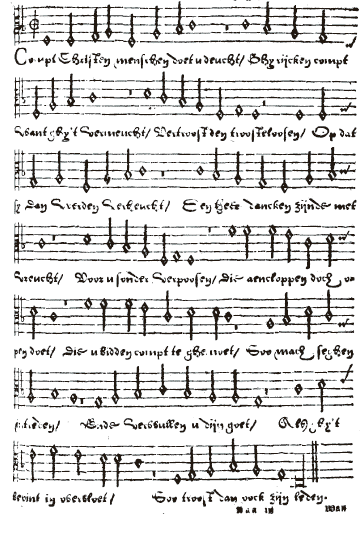 Compt Christen menschen doet u deucht / Ghy rijcken compt
Want ghy't vermeucht / Vertroost den troosteloosen / Op dat
sy dan werden verheucht / Een Heer dancken zijnde met
vreucht / Voor u sonder verpoosen / die aencloppen doch o-
pen doet / Die u bidden compt te ghemoet / Soo mach seghen
Erde vervullen u dijn goet / Al ghy't
bemint in overvloet / Soo troost dan oock zijn leden.